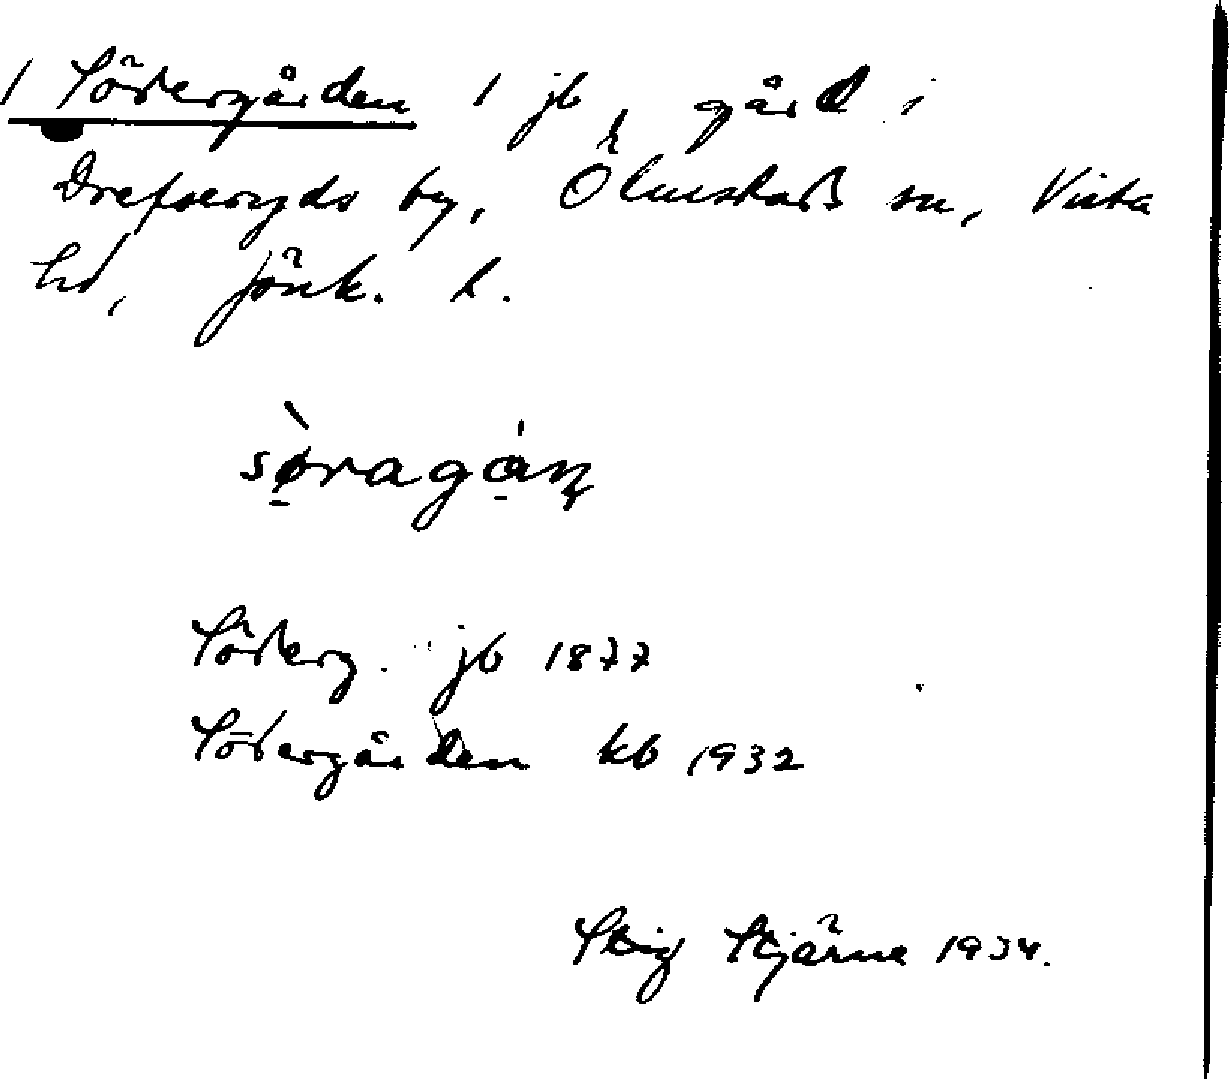 1 Södergården 1 jb, gård i
Drefseryds by, Ölmstads sn, Vista
hd, Jönk. l.
sø̠̀ragȧ̠n̥
Söderg. jb 1877
Södergården kb 1932
Stig Stjärne 1934.